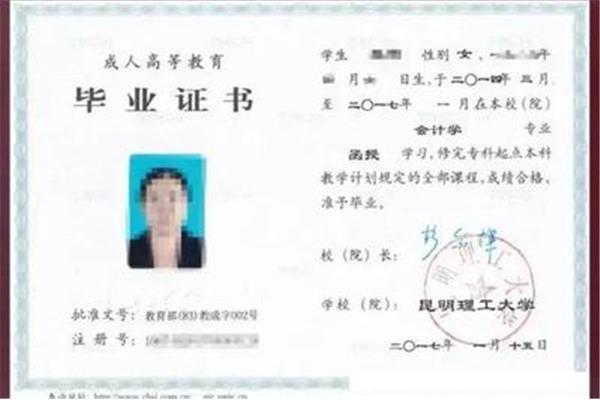 成人高等教育
毕业证书
批准文号：教育部(83)教成字002号
注册号：
学生 性别 女， 年
月 日生，于二〇一四年 三月
至 二〇一七年 一月在本校(院)
会计学 专业
函授 学习，修完专科起点本科
教学计划规定的全部课程，成绩合格，
准予毕业。
校(院)长：
学校(院)：昆明理工大学
二〇一七年 一月 十五日